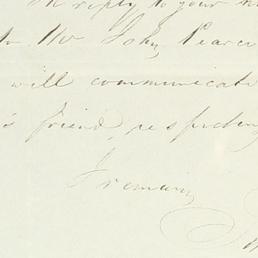 In reply to your
Mr John Pearce
will communicate
's friend, respecting
I remain